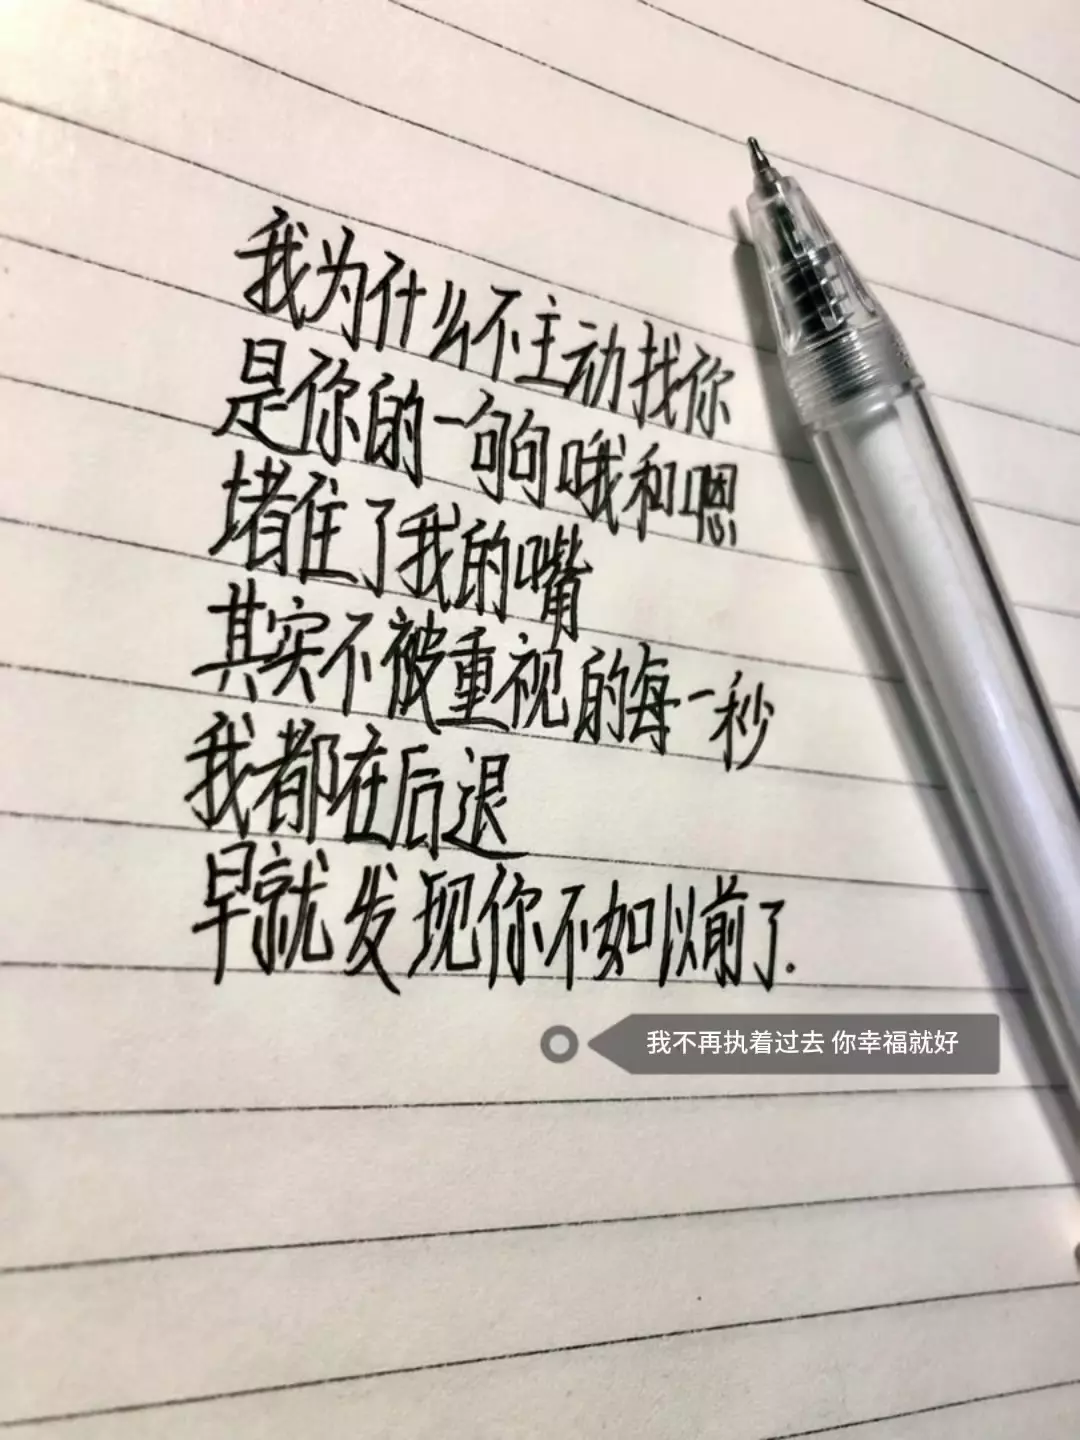 我为什么不主动找你
是你的一句句哦和嗯
堵住了我的嘴
其实不被重视的每一秒
我都在后退
早就发现你不如以前了.
我不再执着过去 你幸福就好